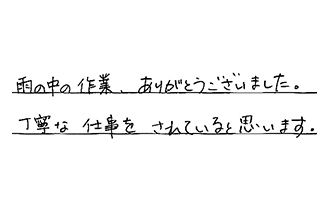 雨の中の作業、ありがとうございました。
丁寧な仕事をされていると思います。